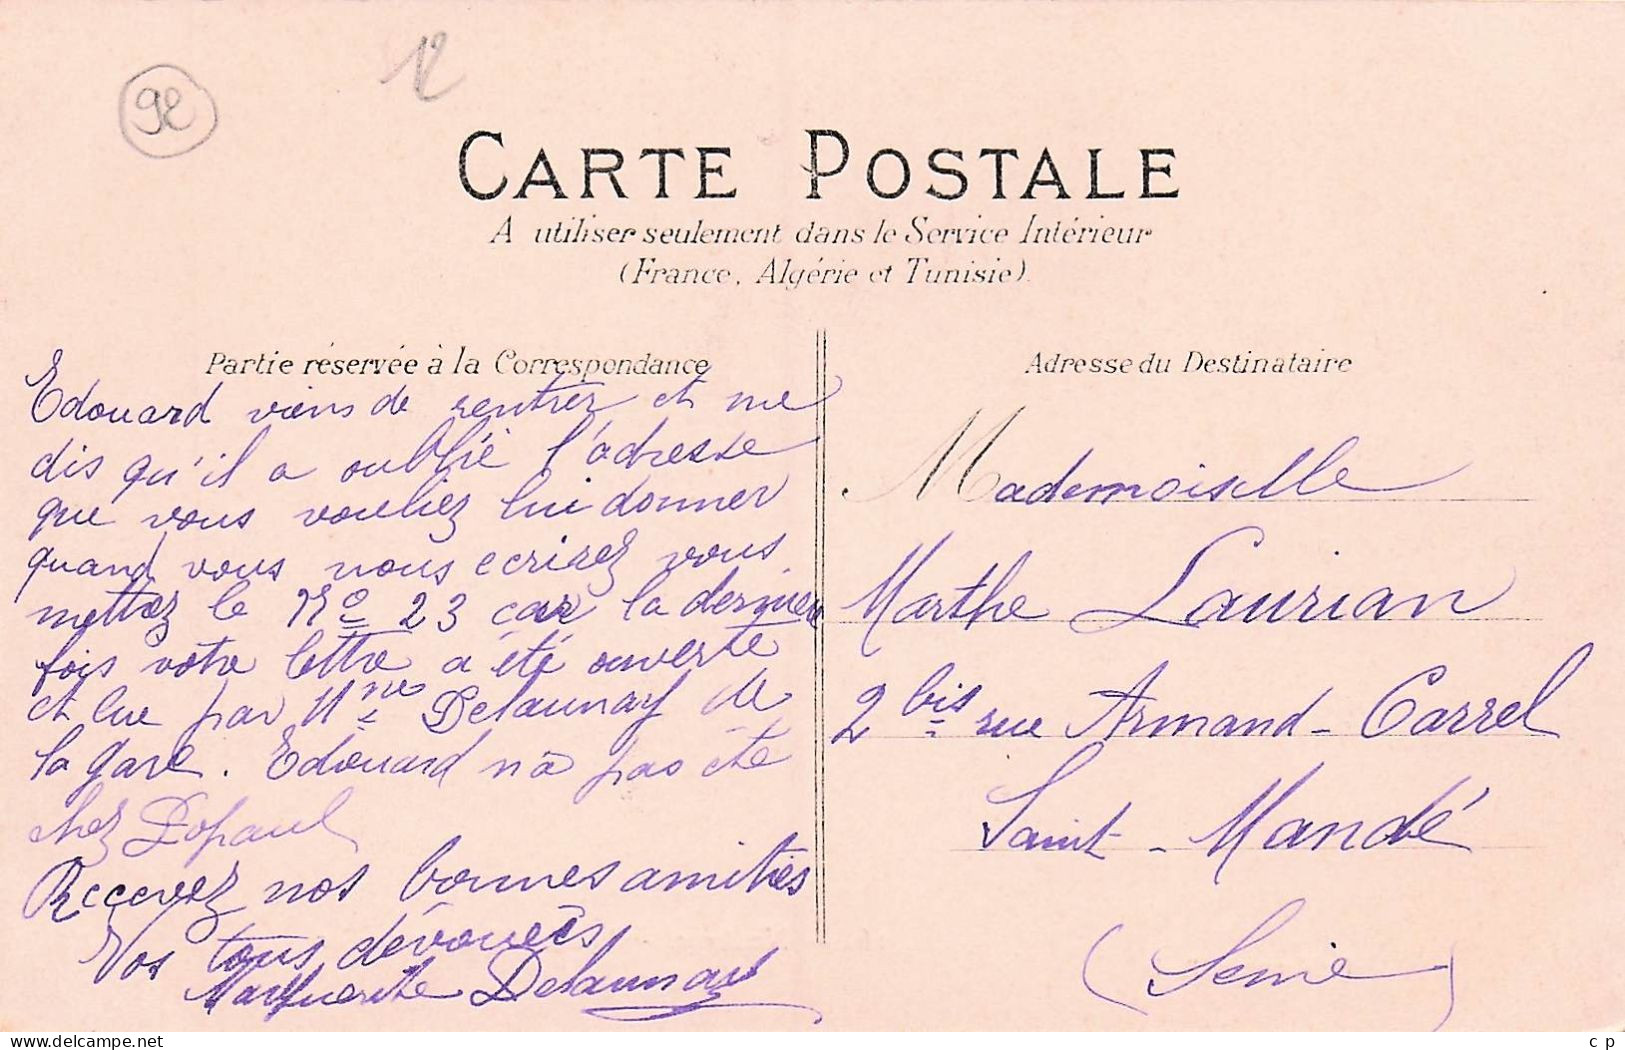 92
12
CARTE POSTALE
A utiliser seulement dans le Service Intérieur
(France, Algérie et Tunisie)
Partie réservée à la Correspondance
Edouard viens de rentrer et me
dis qu'il a oublié l'adresse
que vous vouliez lui donner
quand vous nous ecrirez vous
mettrez le No 23 car la dernière
fois votre lettre a été ouverte
et lue par Mme Delaunay de
la gare. Edouard n'a pas été
chez Lopaul
Recevez nos bonnes amitiés
Vos tous dévoués
Marguerite Delaunay
Adresse du Destinataire
Mademoiselle
Marthe Laurian
2 bis rue Armand-Carrel
Saint-Mandé
(Seine)
delcampe.net
c p